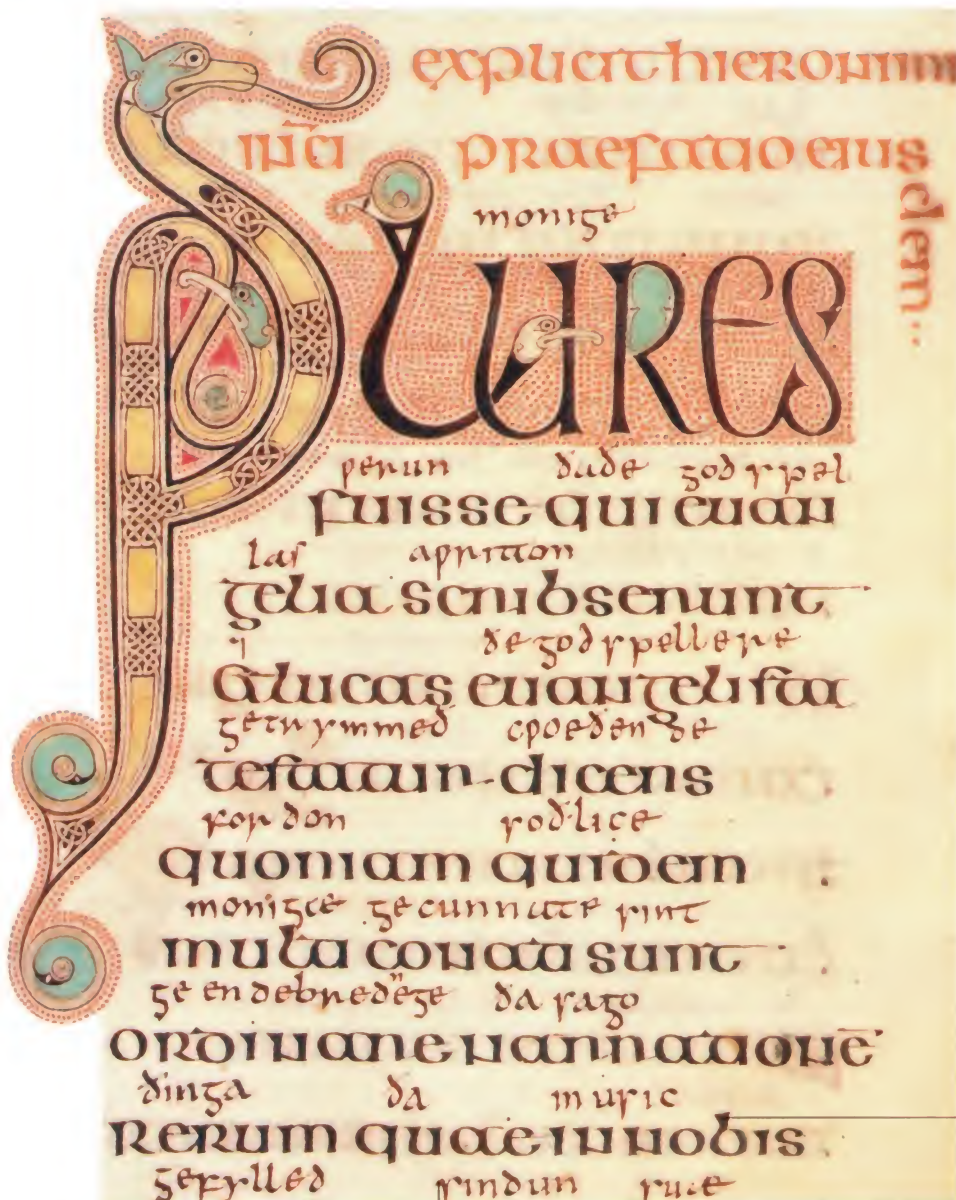 explicit hieronimi
incī praefatio eius
dem
monige
PLURES
ƿerun ðaðe godspel
fuisse qui euan
las aƿritton
gelia scribserunt
⁊ ðe godspellere
& lucas euangelista
getrymmeð cƿoeðende
testatur dicens
forðon soðlice
quoniam quidem
monigæ gecunnate sint
multi conati sunt
ge endebrednege ða sago
ordinare narrationē
ðinga ða in usic
rerum quae in nobis
gefylled sindun